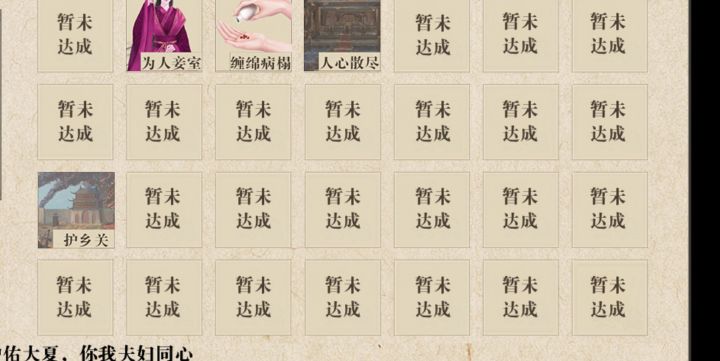 暂未
达成
为人妾室
缠绵病榻
人心散尽
暂未
达成
暂未
达成
暂未
达成
暂未
达成
暂未
达成
暂未
达成
暂未
达成
暂未
达成
暂未
达成
暂未
达成
护乡关
暂未
达成
暂未
达成
暂未
达成
暂未
达成
暂未
达成
暂未
达成
暂未
达成
暂未
达成
暂未
达成
暂未
达成
暂未
达成
暂未
达成
暂未
达成
佑大夏，你我夫妇同心